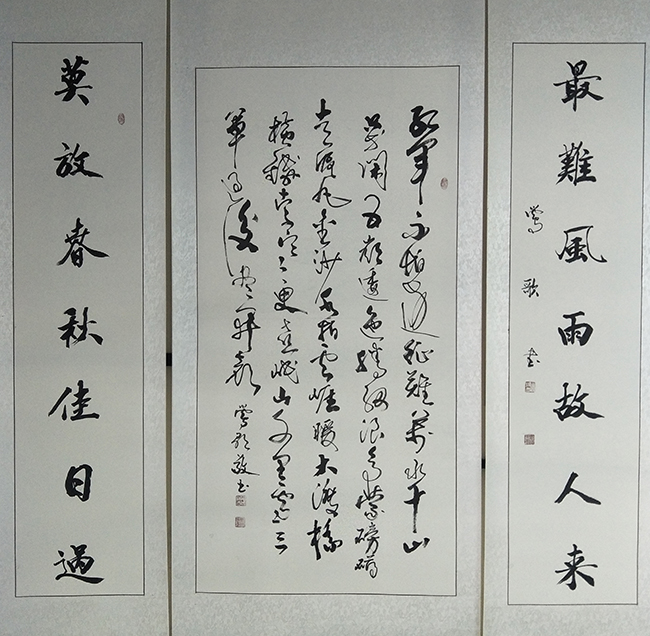 最難風雨故人来
鶯歌書
紅軍不怕遠征難萬水千山
只等闲五嶺逶迤腾细浪烏蒙磅礴
走泥丸金沙水拍雲崖暖大渡橋
横鐵索寒更喜岷山千里雪三
軍過後盡開顏
鶯歌敬書
莫放春秋佳日過